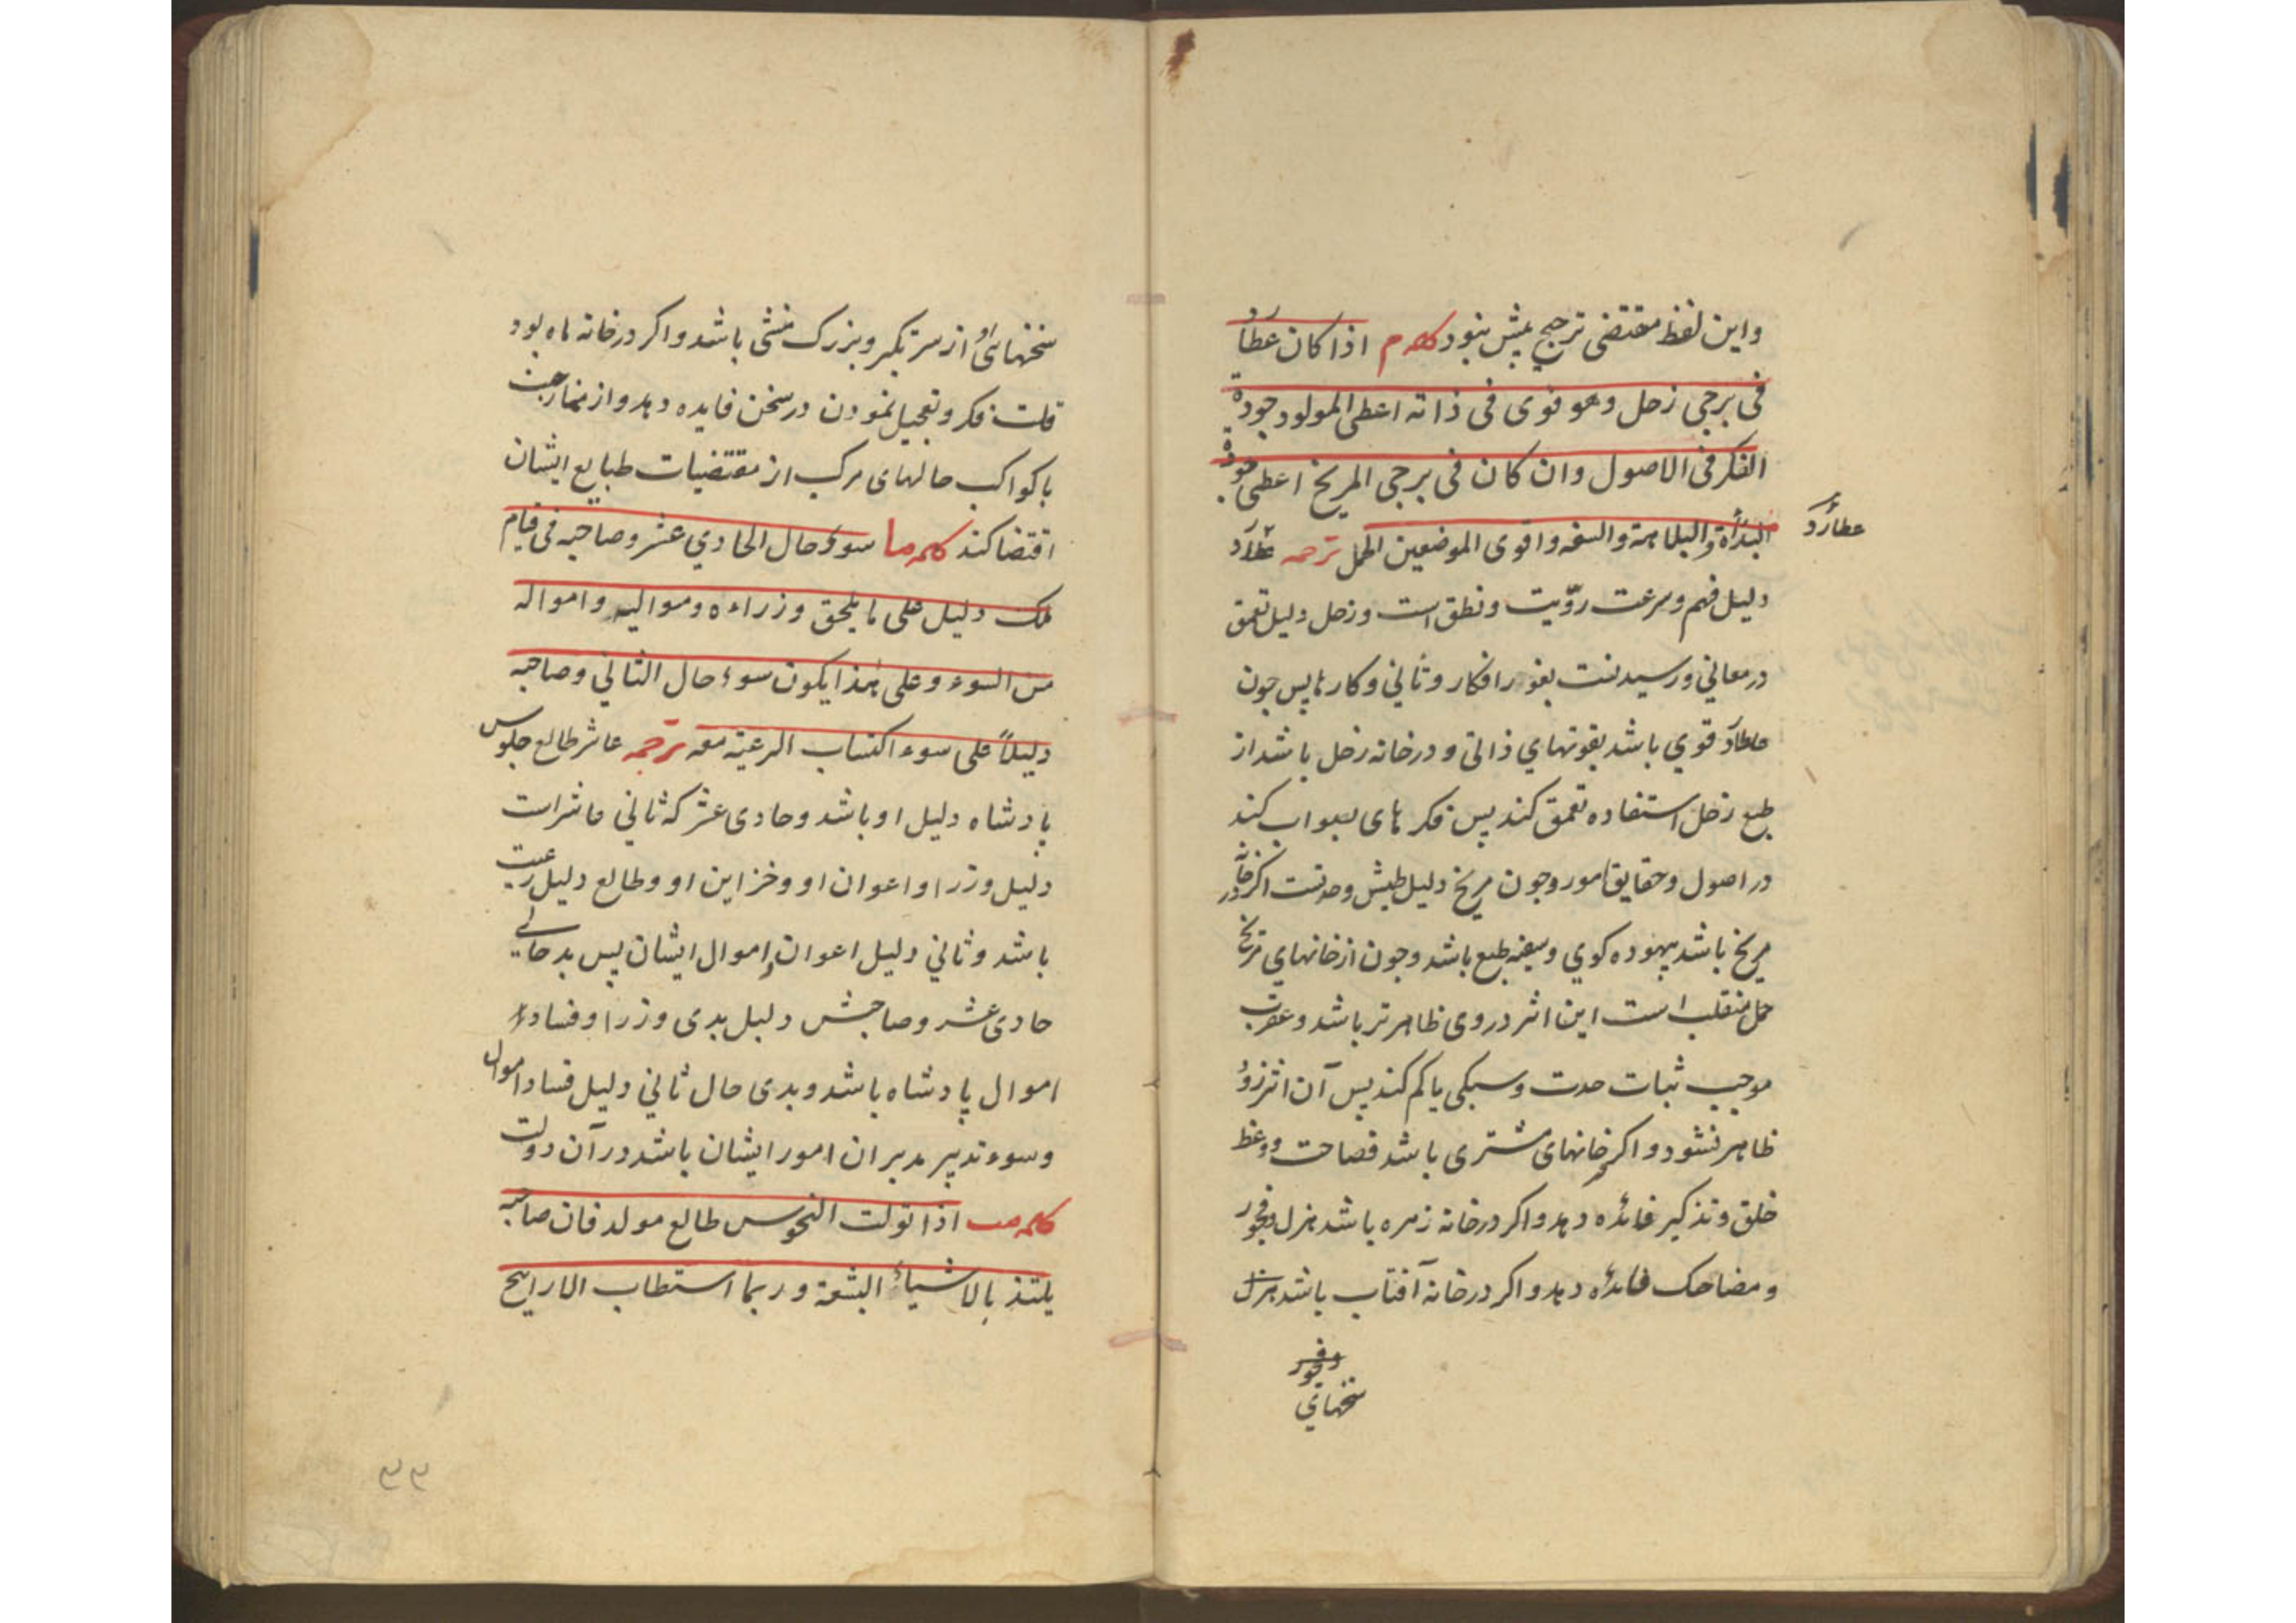 واین لفظ مقتضی ترجیح پیش نبود کلمه م اذا کان عطارد
فی برجی زحل وهو قوی فی ذاته اعطی المولود جودة
الفکر فی الاصول وان کان فی برجی المریخ اعطی جودة
البداة والبلاهة والسفه واقوی الموضعین الحمل ترجمه عطارد
عطارد
دلیل فهم وسرعت رویّت ونطق است وزحل دلیل تعمق
در معاني ورسیدنست بغور افکار وتأني وکارها پس چون
عطارد قوي باشد بقوتهاي ذاتی ودر خانه زحل باشد از
طبع زحل استفاده تعمق کند پس فکر های بصواب کند
در اصول وحقایق امور وچون مریخ دلیل طیش وحدتست اکر در خانه
مریخ باشد بیهوده کوي وسفیه طبع باشد وچون از خانهاي مریخ
حمل منقلب است این اثر در وی ظاهرتر باشد وعقرب
موجب ثبات حدت وسبکی یا کم کند پس آن اثر زو
ظاهر نشود واکر خانهای مشتری باشد فصاحت ووعظ
خلق وتذکیر فائده دهد واکر در خانه زهره باشد هزل وفجور
ومضاحک فائده دهد واکر در خانه آفتاب باشد هزل
وفجور
سخنهاي
سخنهائ او از سر تکبر وبزرک منشی باشد واکر در خانه ماه بود
قلت فکر وتعجیل نمودن در سخن فایده دهد واز ممازجت
با کواکب حالهای مرکب از مقتضیات طبایع ایشان
اقتضا کند کلمه ما سوء حال الحادي عشر وصاحبه فی قیام
ملک دلیل علی ما یلحق وزراءه وموالیه وامواله
من السوء وعلی هذا یکون سوء حال الثاني وصاحبه
دلیلاً علی سوء اکتساب الرعیة معه ترجمه عاشر طالع جلوس
پادشاه دلیل او باشد وحادی عشر که ثاني عاشر است
دلیل وزرا واعوان او وخزاین او وطالع دلیل رعیت
باشد وثاني دلیل اعوان واموال ایشان پس بد حالی
حادی عشر وصاحبش دلیل بدی وزرا وفساد
اموال پادشاه باشد وبدی حال ثاني دلیل فساد اموال
وسوء تدبیر مدبران امور ایشان باشد در آن دولت
کلمه مب اذا تولت النحوس طالع مولد فان صاحبه
یلتذ بالاشیاء البشعة وربما استطاب الاراییح
۳۳